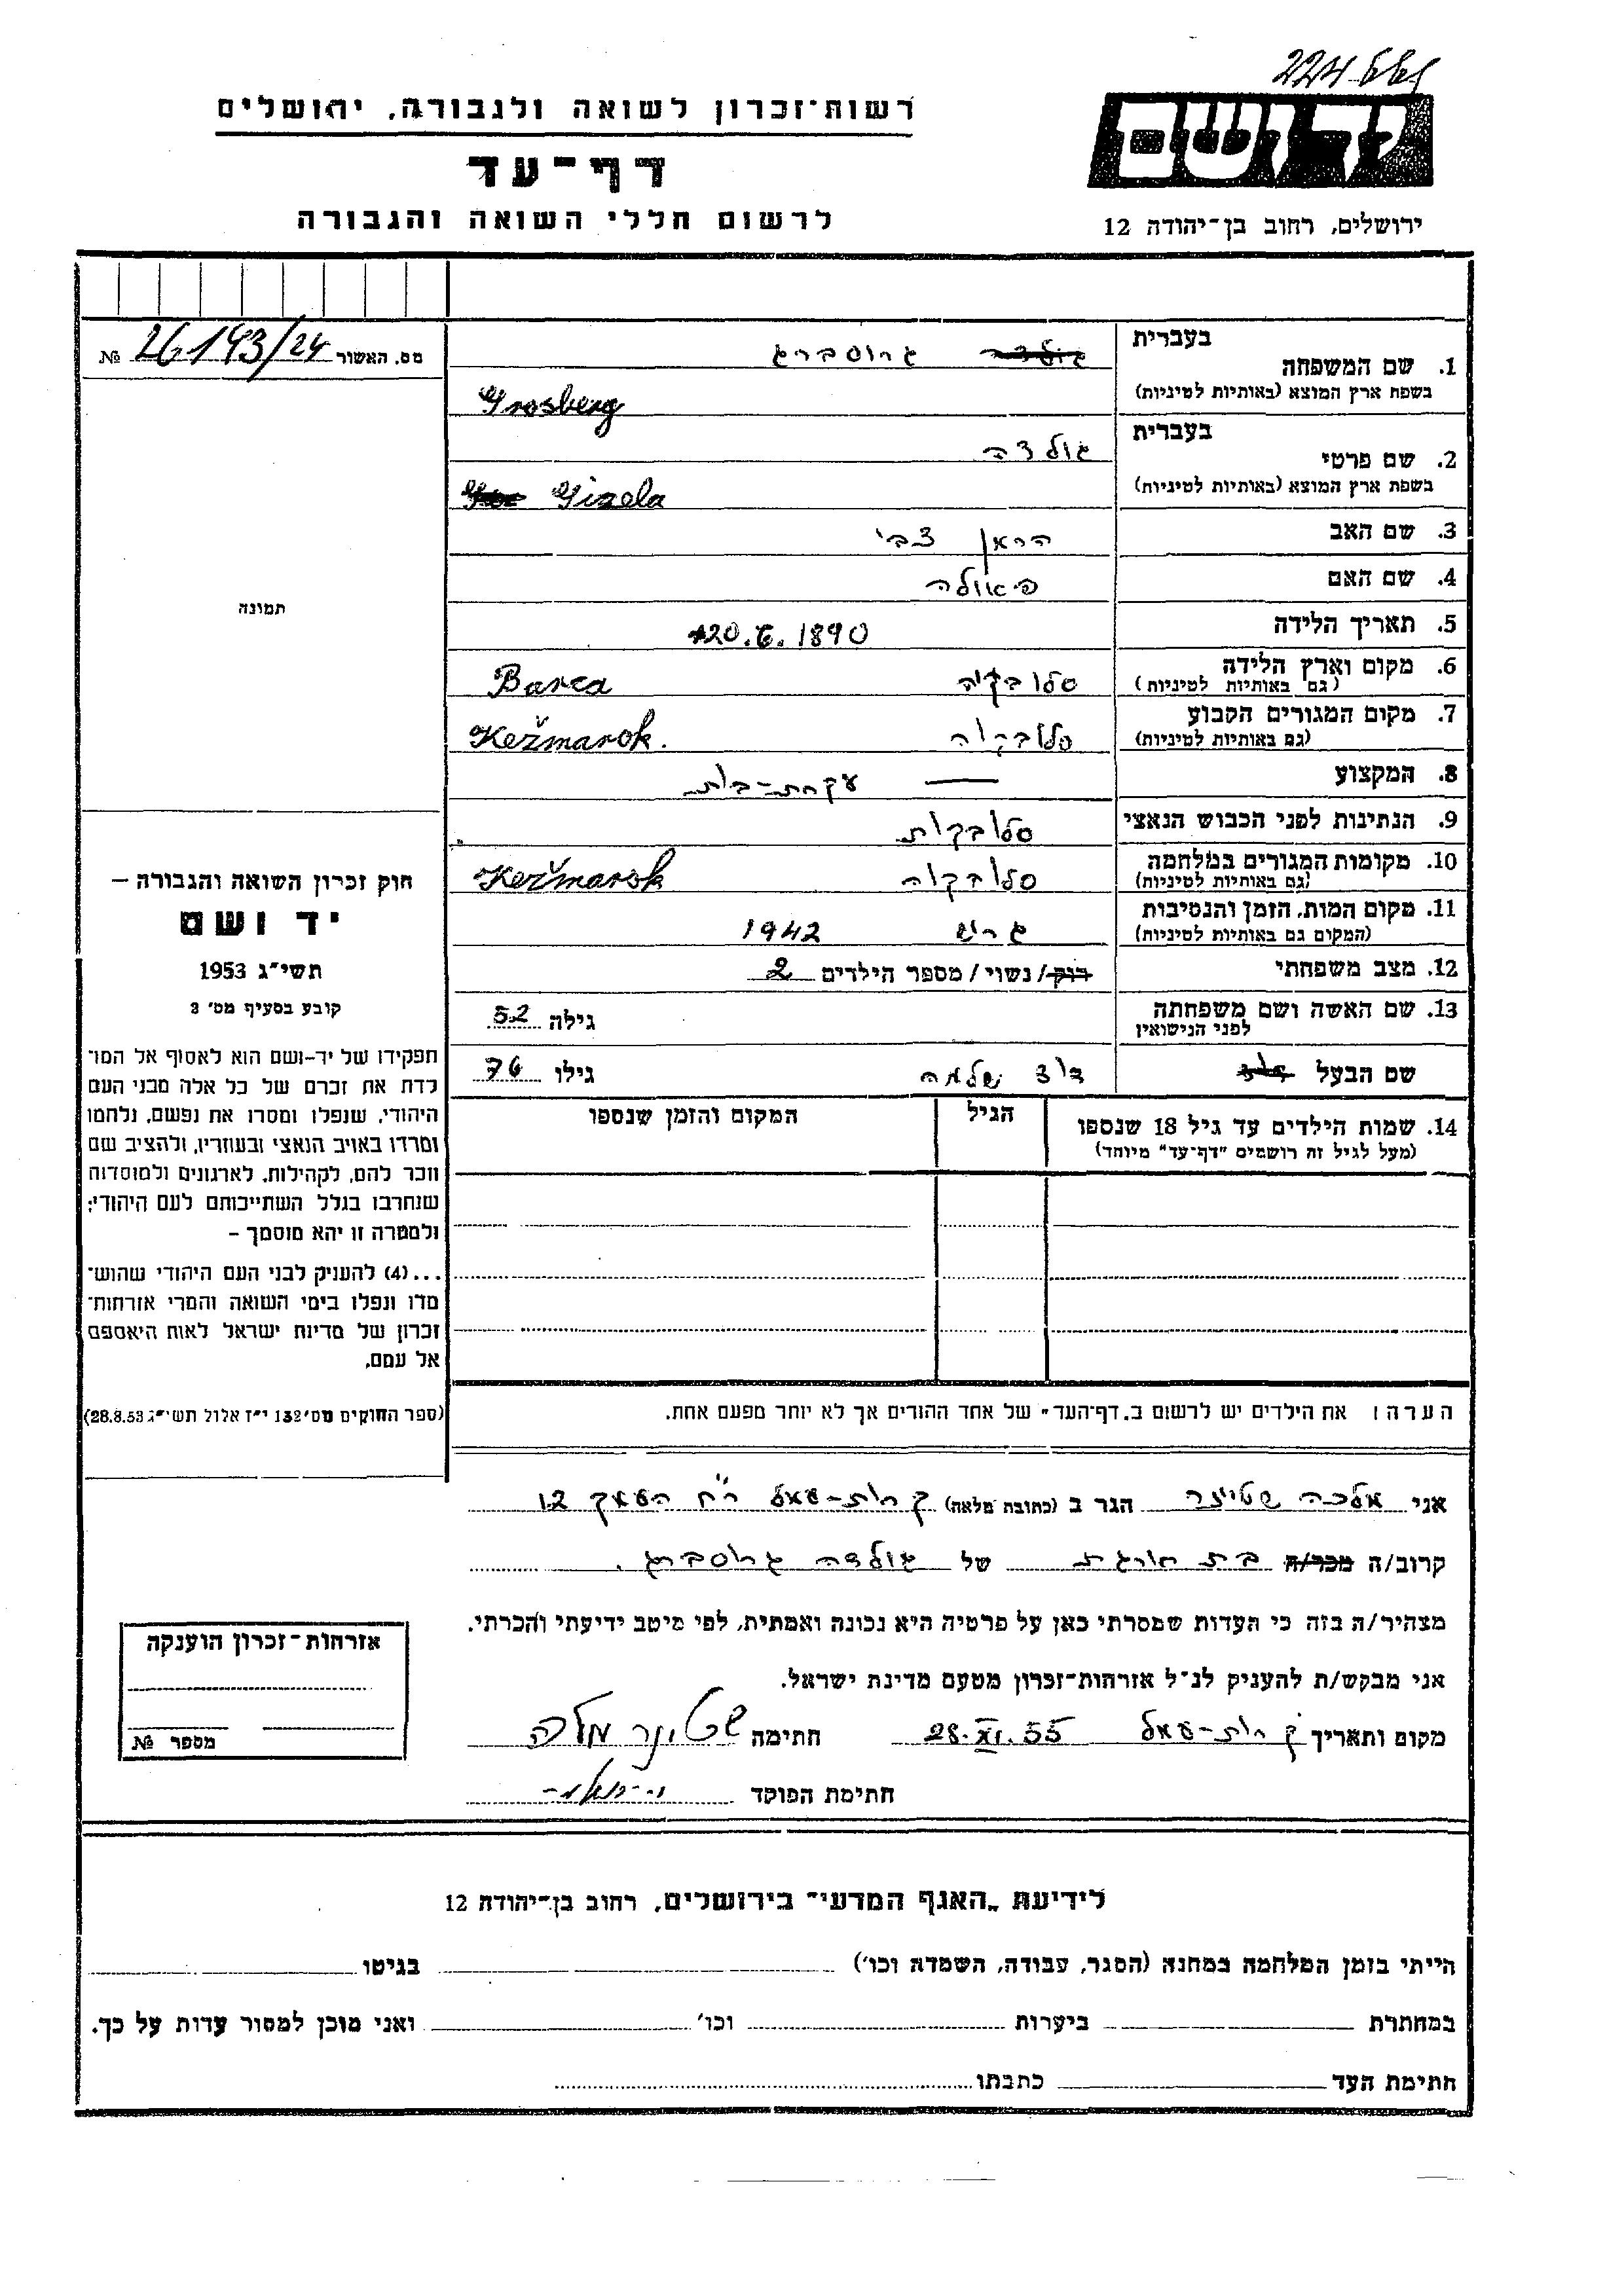 רשות־זכרון לשואה ולגבורה, ירושלים
דף־עד
לרשום חללי השואה והגבורה
יד ושם
ירושלים, רחוב בן־יהודה 12
מס. האשור 26193/24 №
1. שם המשפחה
בעברית גרוסברג
בשפת ארץ המוצא (באותיות לטיניות) Grosberg
2. שם פרטי
בעברית גולדה
בשפת ארץ המוצא (באותיות לטיניות) Gizela
3. שם האב הרמן צבי
4. שם האם פאולה
5. תאריך הלידה 20.6.1890
6. מקום וארץ הלידה סלובקיה Barca
(גם באותיות לטיניות)
7. מקום המגורים הקבוע סלובקיה Kežmarok.
(גם באותיות לטיניות)
8. המקצוע — עקרת-בית
9. הנתינות לפני הכבוש הנאצי סלובקית
10. מקומות המגורים במלחמה סלובקיה Kežmarok
(גם באותיות לטיניות)
11. מקום המות, הזמן והנסיבות 1942
(המקום גם באותיות לטיניות)
12. מצב משפחתי רוק/נשוי/מספר הילדים 2
13. שם האשה ושם משפחתה
לפני הנישואין
גילה 52
שם הבעל דוד שלמה גילו 76
14. שמות הילדים עד גיל 18 שנספו
(מעל לגיל זה רושמים "דף־עד" מיוחד)
הגיל
המקום והזמן שנספו
תמונה
חוק זכרון השואה והגבורה –
יד ושם
תשי״ג 1953
קובע בסעיף מס׳ 3
תפקידו של יד-ושם הוא לאסוף אל המו־
לדת את זכרם של כל אלה מבני העם
היהודי, שנפלו ומסרו את נפשם, נלחמו
ומרדו באויב הנאצי ובעוזריו, ולהציב שם
וזכר להם, לקהילות, לארגונים ולמוסדות
שנחרבו בגלל השתייכותם לעם היהודי;
ולמטרה זו יהא מוסמך –
...(4) להעניק לבני העם היהודי שהוש־
מדו ונפלו בימי השואה והמרי אזרחות־
זכרון של מדינת ישראל לאות היאספם
אל עמם.
(ספר החוקים מס׳ 132 י״ז אלול תשי״ג 28.8.53)
הערה: את הילדים יש לרשום ב„דף־העד״ של אחד ההורים אך לא יותר מפעם אחת.
אני מלכה שטיינר הגר ב (כתובת מלאה) קרית-שמאל רח׳ העמק 12
קרוב/ה מכר/ה של גולדה גרוסברג.
מצהיר/ה בזה כי העדות שמסרתי כאן על פרטיה היא נכונה ואמתית, לפי מיטב ידיעתי והכרתי.
אני מבקש/ת להעניק לנ״ל אזרחות־זכרון מטעם מדינת ישראל.
מקום ותאריך 28.XI.55 חתימה שטינר מלכה
חתימת הפוקד
אזרחות־זכרון הוענקה
מספר №
לידיעת „האגף המדעי״ בירושלים, רחוב בן־יהודה 12
הייתי בזמן המלחמה במחנה (הסגר, עבודה, השמדה וכו׳) בגיטו
במחתרת ביערות וכו׳ ואני מוכן למסור עדות על כך.
חתימת העד כתבתו